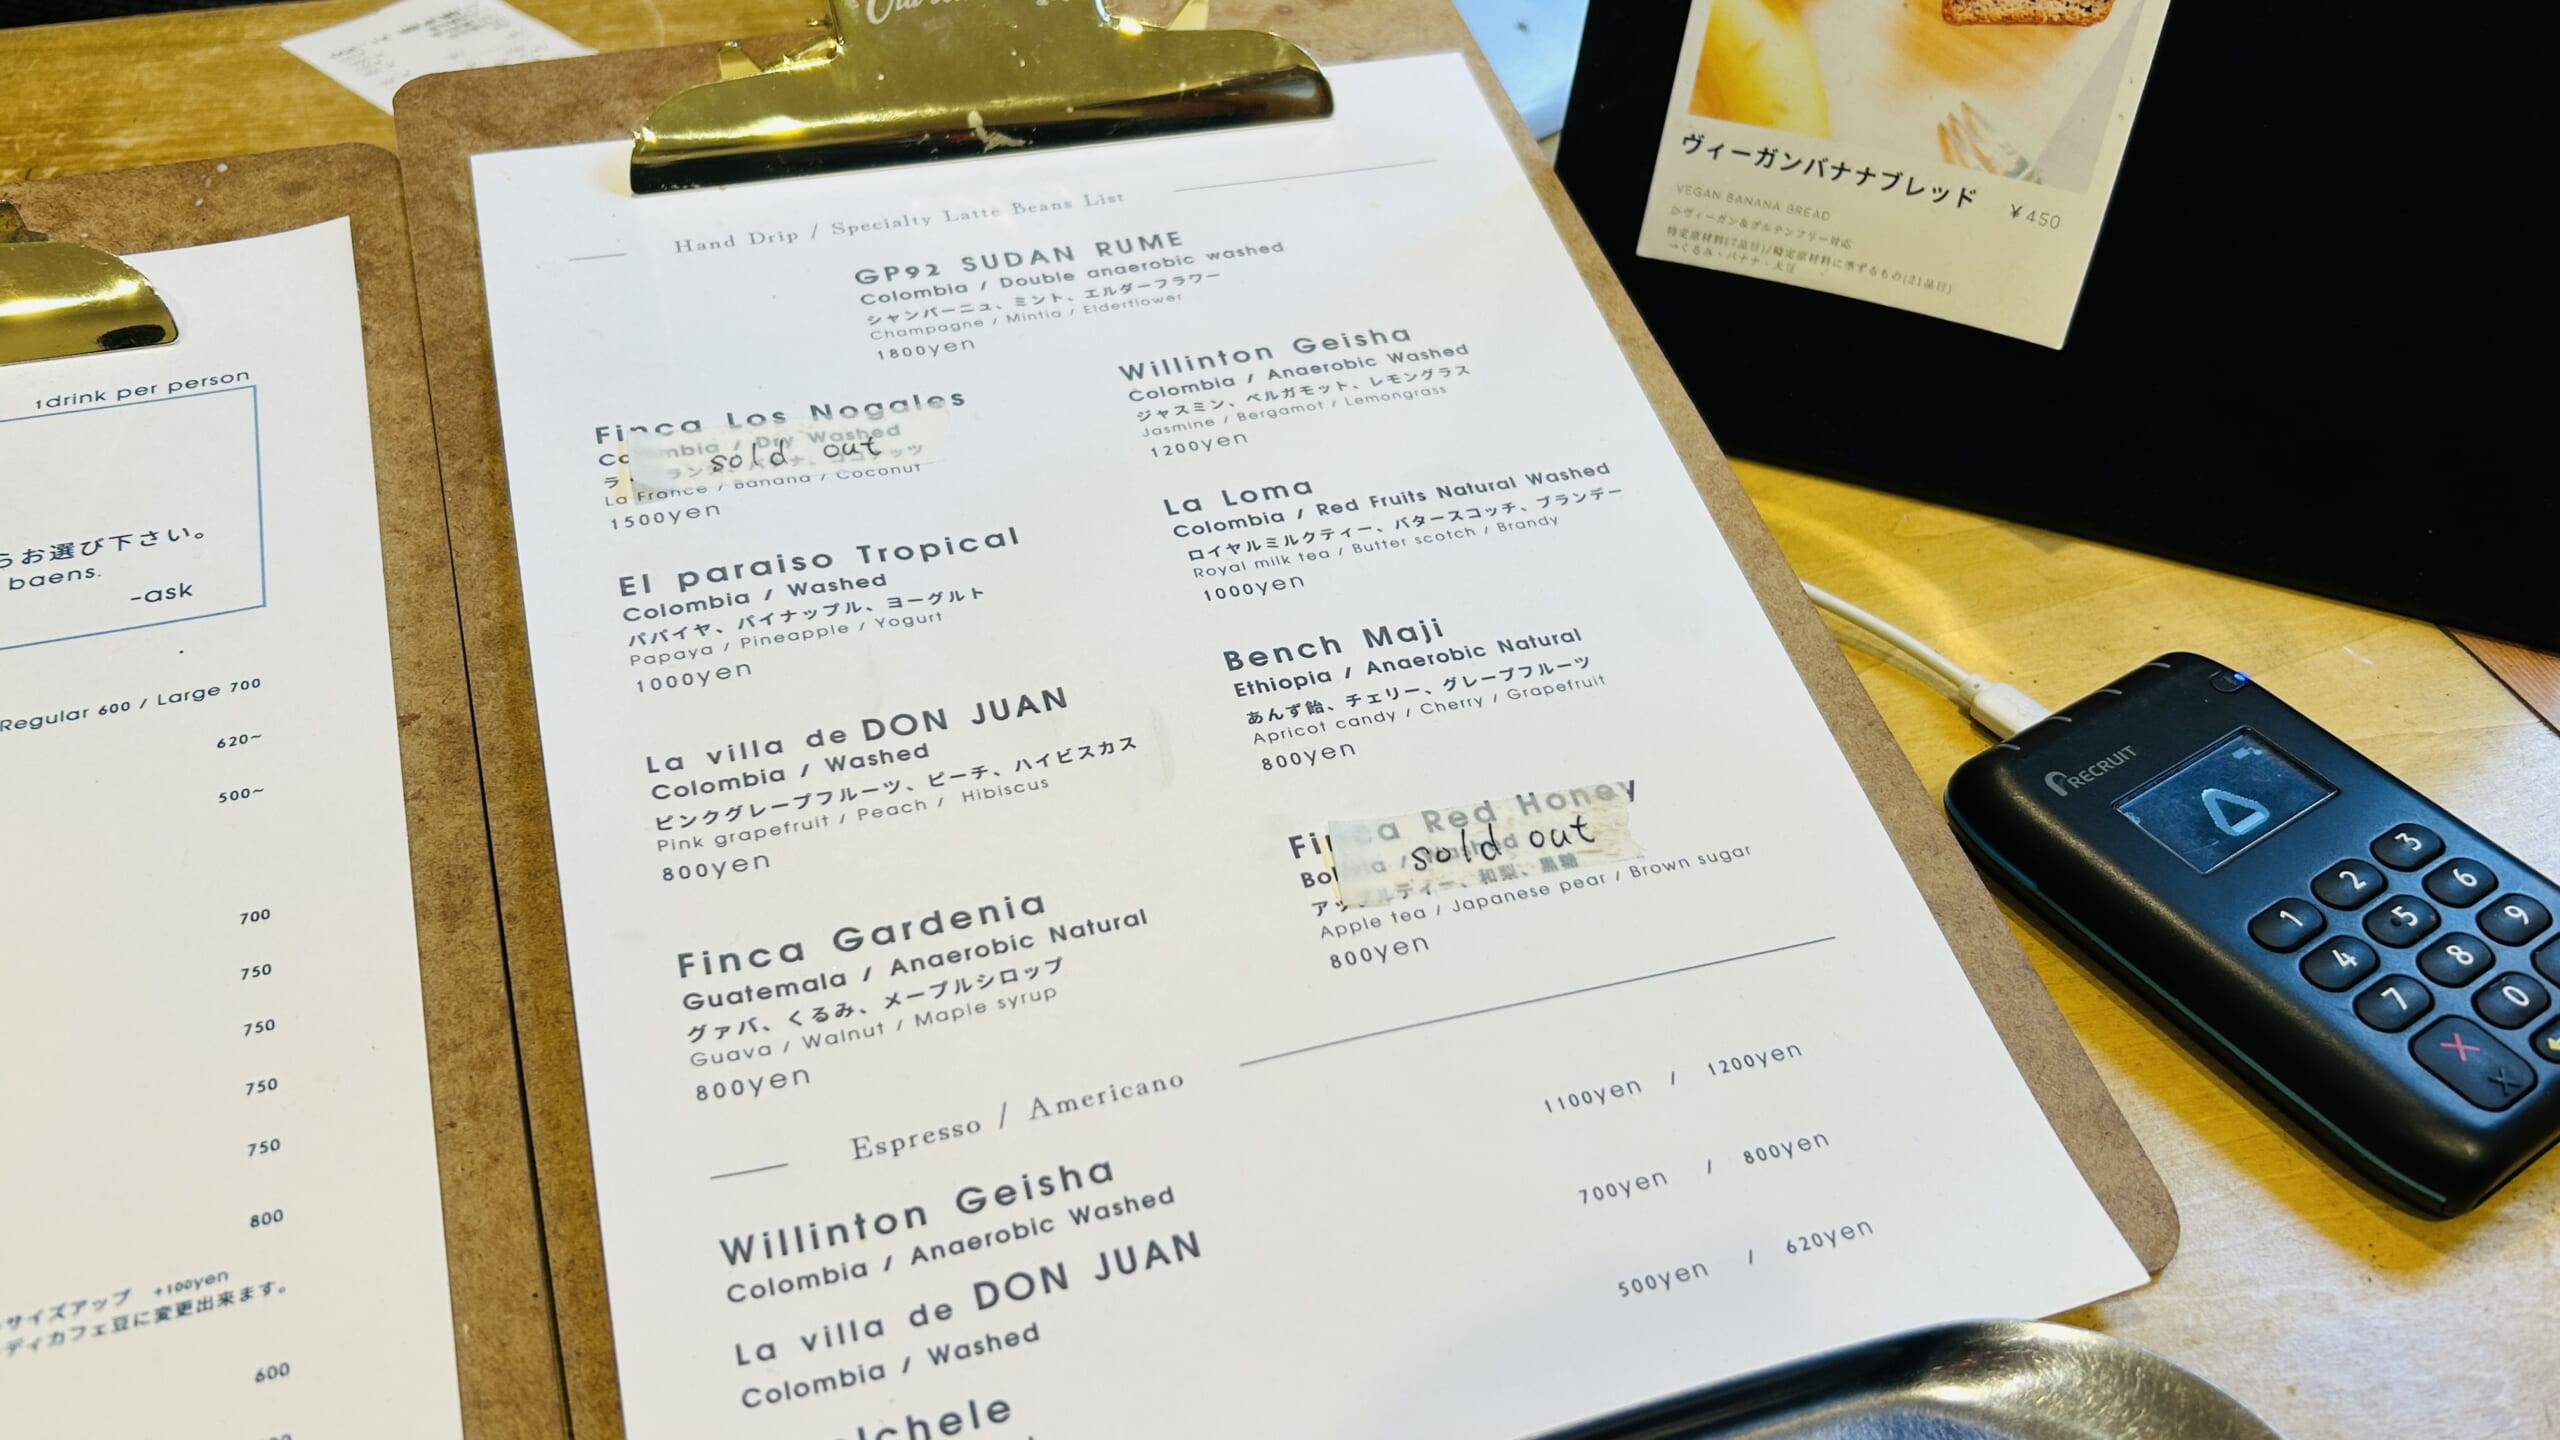 1drink per person
らお選び下さい。
baens.
-ask
Regular 600 / Large 700
620~
500~
700
750
750
750
750
800
サイズアップ +100yen
ディカフェ豆に変更出来ます。
600
Hand Drip / Specialty Latte Beans List
GP92 SUDAN RUME
Colombia / Double anaerobic washed
シャンパーニュ、ミント、エルダーフラワー
Champagne / Mintia / Elderflower
1800yen
Finca Los Nogales
Colombia / Dry Washed
sold out
La France / Banana / Coconut
1500yen
El paraiso Tropical
Colombia / Washed
パパイヤ、パイナップル、ヨーグルト
Papaya / Pineapple / Yogurt
1000yen
La villa de DON JUAN
Colombia / Washed
ピンクグレープフルーツ、ピーチ、ハイビスカス
Pink grapefruit / Peach / Hibiscus
800yen
Finca Gardenia
Guatemala / Anaerobic Natural
グァバ、くるみ、メープルシロップ
Guava / Walnut / Maple syrup
800yen
Willinton Geisha
Colombia / Anaerobic Washed
ジャスミン、ベルガモット、レモングラス
Jasmine / Bergamot / Lemongrass
1200yen
La Loma
Colombia / Red Fruits Natural Washed
ロイヤルミルクティー、バタースコッチ、ブランデー
Royal milk tea / Butter scotch / Brandy
1000yen
Bench Maji
Ethiopia / Anaerobic Natural
あんず飴、チェリー、グレープフルーツ
Apricot candy / Cherry / Grapefruit
800yen
Finca Red Honey
sold out
アップルティー、和梨、黒糖
Apple tea / Japanese pear / Brown sugar
800yen
Espresso / Americano
Willinton Geisha 1100yen / 1200yen
Colombia / Anaerobic Washed
La villa de DON JUAN 700yen / 800yen
Colombia / Washed
500yen / 620yen
ヴィーガンバナナブレッド
VEGAN BANANA BREAD ¥450
▷ヴィーガン&グルテンフリー対応
特定原材料(7品目)/特定原材料に準ずるもの(21品目)
→くるみ・バナナ・大豆
RECRUIT
1 2 3
4 5 6
7 8 9
0